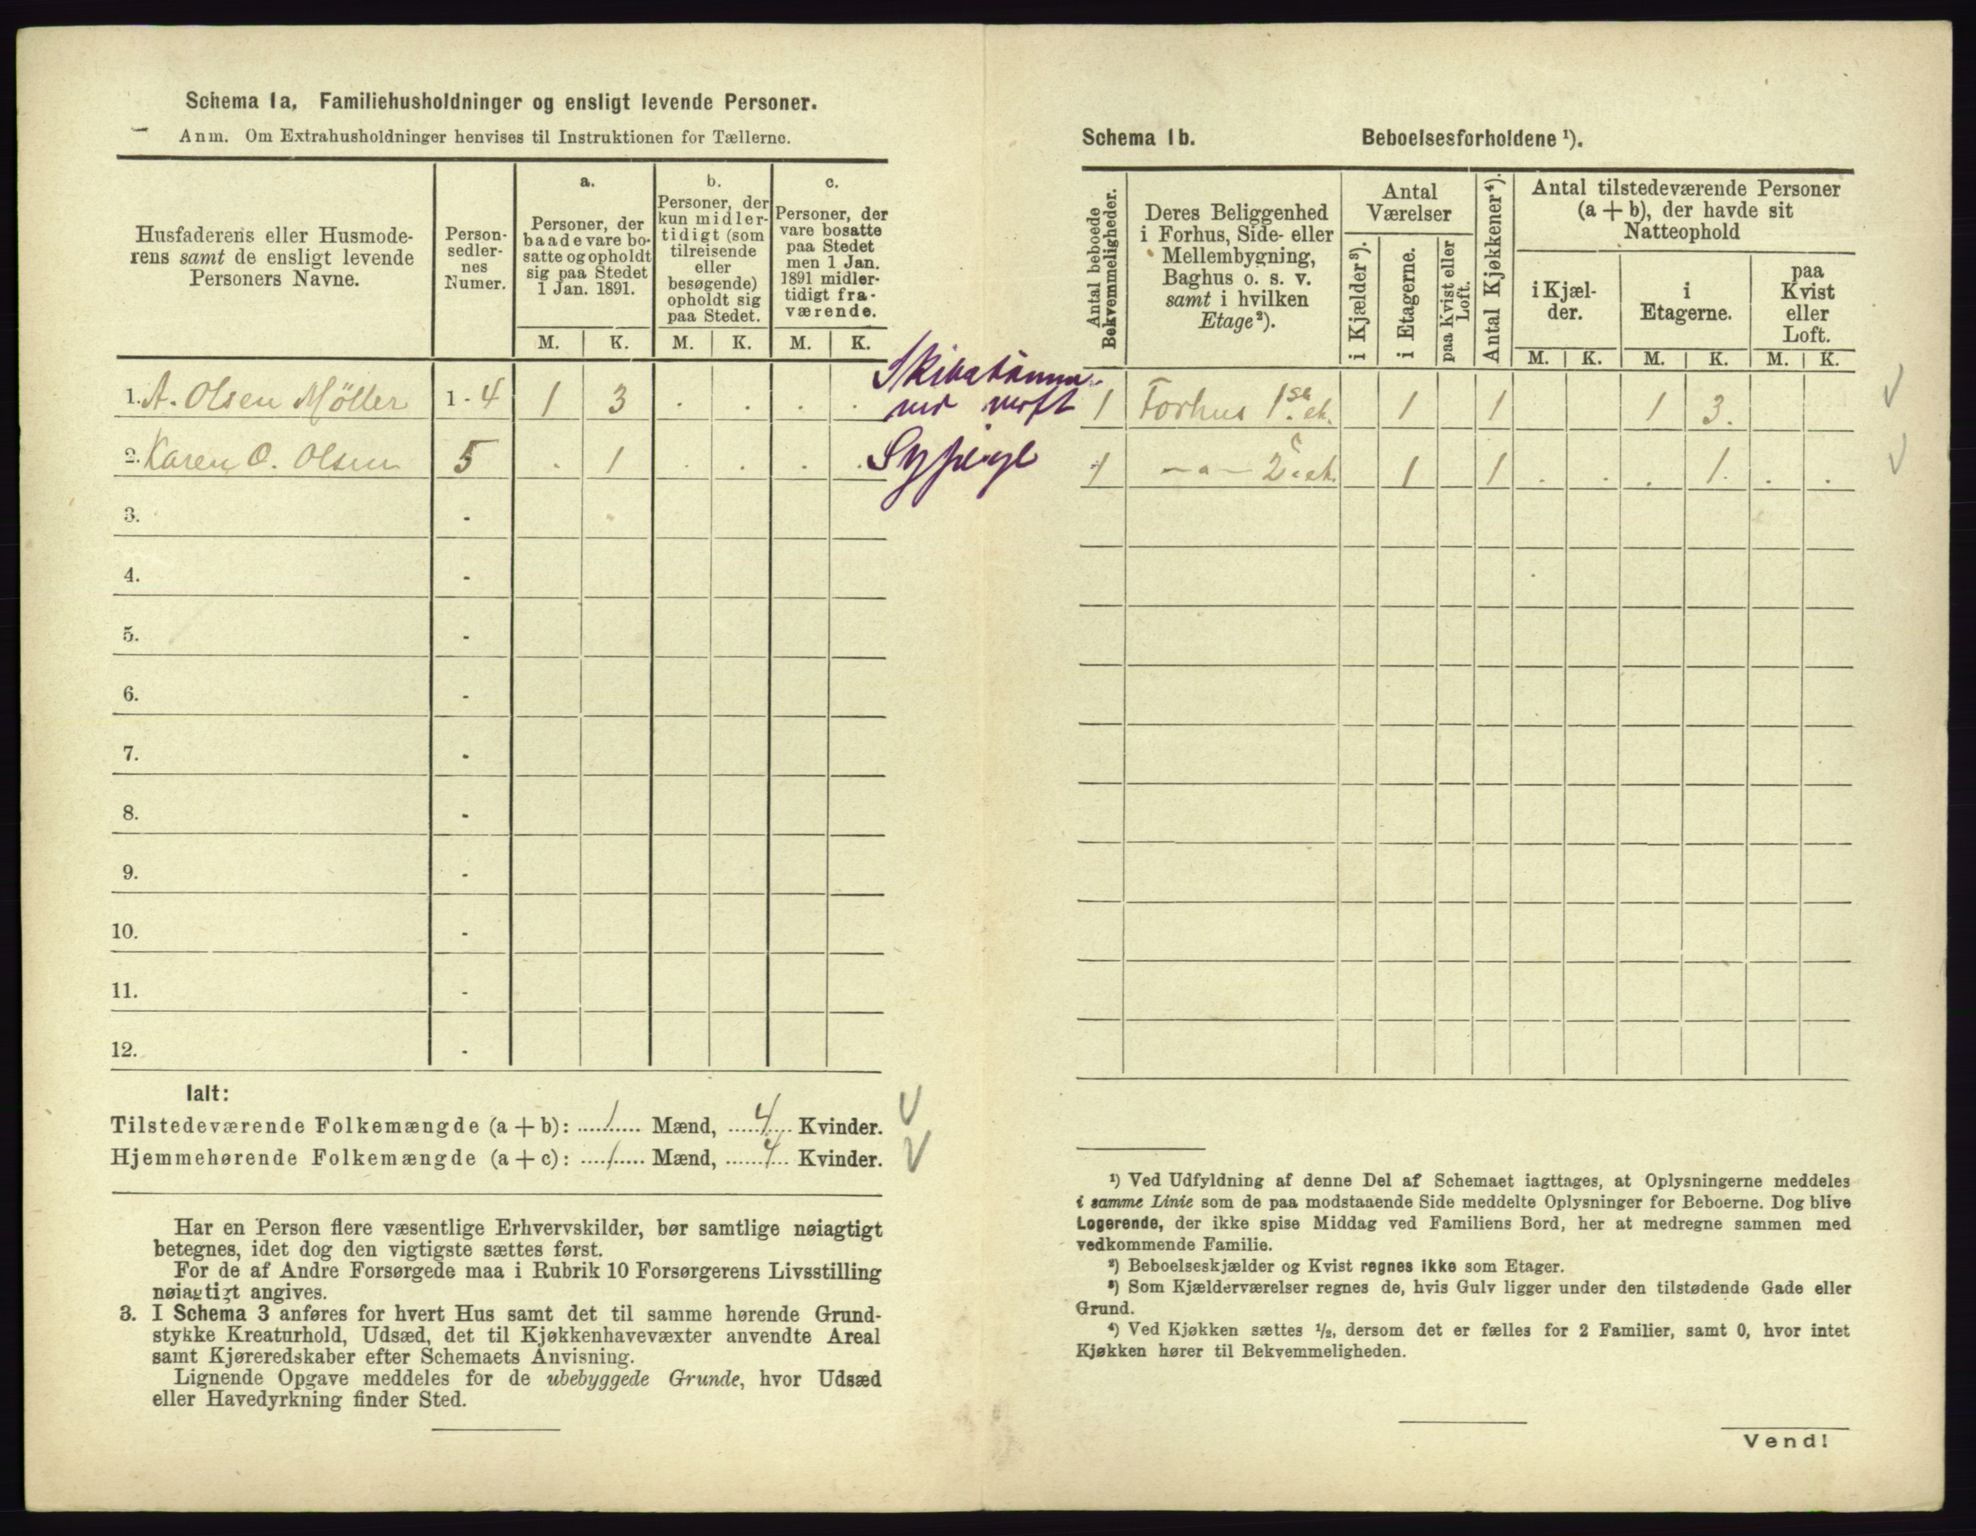 Schema 1a. Familiehusholdninger og ensligt levende Personer.
Anm. Om Extrahusholdninger henvises til Instruktionen for Tællerne.
Husfaderens eller Husmode-
rens samt de ensligt levende
Personers Navne.
Person-
sedler-
nes
Numer.
a.
Personer, der
baade vare bo-
satte og opholdt
sig paa Stedet
1 Jan. 1891.
b.
Personer, der
kun midler-
tidigt (som
tilreisende
eller
besøgende)
opholdt sig
paa Stedet.
c.
Personer, der
vare bosatte
paa Stedet
men 1 Jan.
1891 midler-
tidigt fra-
værende.
M. K. M. K. M. K.
1. A. Olsen Möller 1 - 4 1 3 . . . .
2. Karen O. Olsen 5 . 1 . . . .
Sypige
3. -
4. -
5. -
6. -
7. -
8. -
9. -
10. -
11. -
12. -
Ialt:
Tilstedeværende Folkemængde (a + b): 1 Mænd, 4 Kvinder.
Hjemmehørende Folkemængde (a + c): 1 Mænd, 4 Kvinder.
Har en Person flere væsentlige Erhvervskilder, bør samtlige nøiagtigt
betegnes, idet dog den vigtigste sættes først.
For de af Andre Forsørgede maa i Rubrik 10 Forsørgerens Livsstilling
nøiagtigt angives.
3. I Schema 3 anføres for hvert Hus samt det til samme hørende Grund-
stykke Kreaturhold, Udsæd, det til Kjøkkenhavevæxter anvendte Areal
samt Kjøreredskaber efter Schemaets Anvisning.
Lignende Opgave meddeles for de ubebyggede Grunde, hvor Udsæd
eller Havedyrkning finder Sted.
Schema 1b. Beboelsesforholdene ¹).
Antal beboede
Bekvemmeligheder.
Deres Beliggenhed
i Forhus, Side- eller
Mellembygning,
Baghus o. s. v.
samt i hvilken
Etage²).
Antal
Værelser
i Kjælder³).
i Etagerne.
paa Kvist eller
Loft.
Antal Kjøkkener⁴).
Antal tilstedeværende Personer
(a + b), der havde sit
Natteophold
i Kjæl-
der.
i
Etagerne.
paa
Kvist
eller
Loft.
M. K. M. K. M. K.
1 Forhus 1ste et. 1 1 1 3.
1 — " — 2. et. 1 1 . . . 1. . .
¹) Ved Udfyldning af denne Del af Schemaet iagttages, at Oplysningerne meddeles
i samme Linie som de paa modstaaende Side meddelte Oplysninger for Beboerne. Dog blive
Logerende, der ikke spise Middag ved Familiens Bord, her at medregne sammen med
vedkommende Familie.
²) Beboelseskjælder og Kvist regnes ikke som Etager.
³) Som Kjælderværelser regnes de, hvis Gulv ligger under den tilstødende Gade eller
Grund.
⁴) Ved Kjøkken sættes ½, dersom det er fælles for 2 Familier, samt 0, hvor intet
Kjøkken hører til Bekvemmeligheden.
Vend!